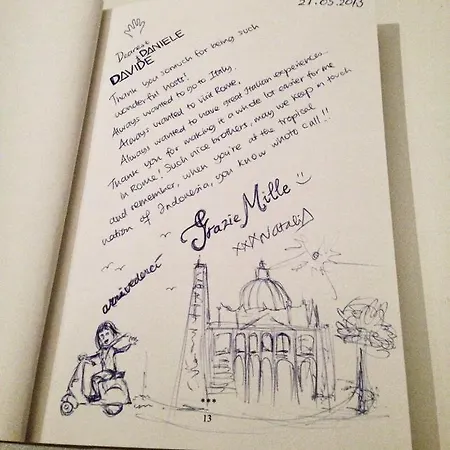 21.05.2013
Dearest
DAVIDE & DANIELE
Thank you somuch for being such
wonderful hosts!
Always wanted to go to Italy,
Always wanted to visit Rome,
Always wanted to have great Italian experiences..
Thank you for making it a whole lot easier for me
in Rome! Such nice brothers, may we keep in touch
and remember, when you're at the tropical
nation of Indonesia, you know who to call!!
Grazie Mille
xxx Natalia
arrivederci
13